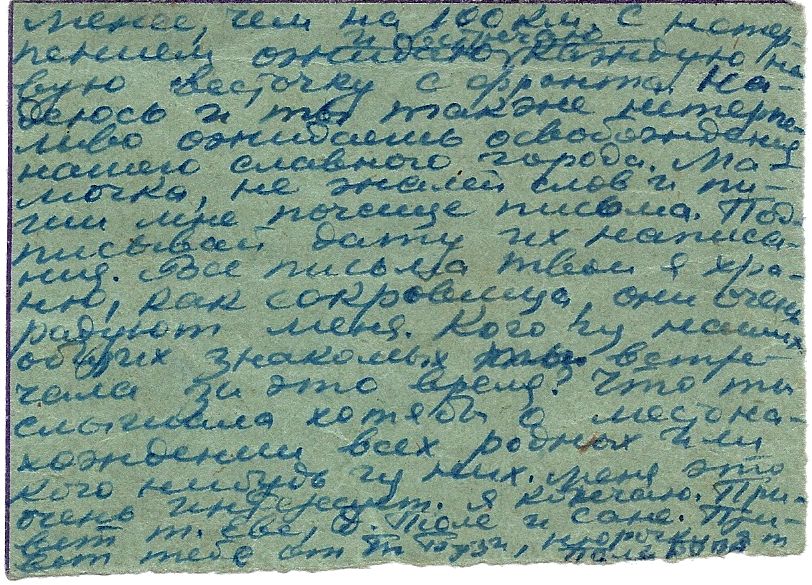 менее, чем на 100 км. С нетер-
и встречаю
пением ожидаю каждую но-
вую весточку с фронта. На-
деюсь и ты также нетерпе-
ливо ожидаешь освобождения
нашего славного города. Ма-
мочка, не жалей слов и пи-
ши мне почаще письма. Под-
писывай дату их написа-
ния. Все письма твои я хра-
ню, как сокровища, они очень
радуют меня. Кого из наших
общих знакомых ты встре-
чала за это время? Что ты
слышала хотябы о местона-
хождении всех родных или
кого нибудь из них. Меня это
очень интересует. Я кончаю. При-
вет т. Еве, д. Поле и Сане. При-
вет тебе от т. Бузи, Нюрочки и